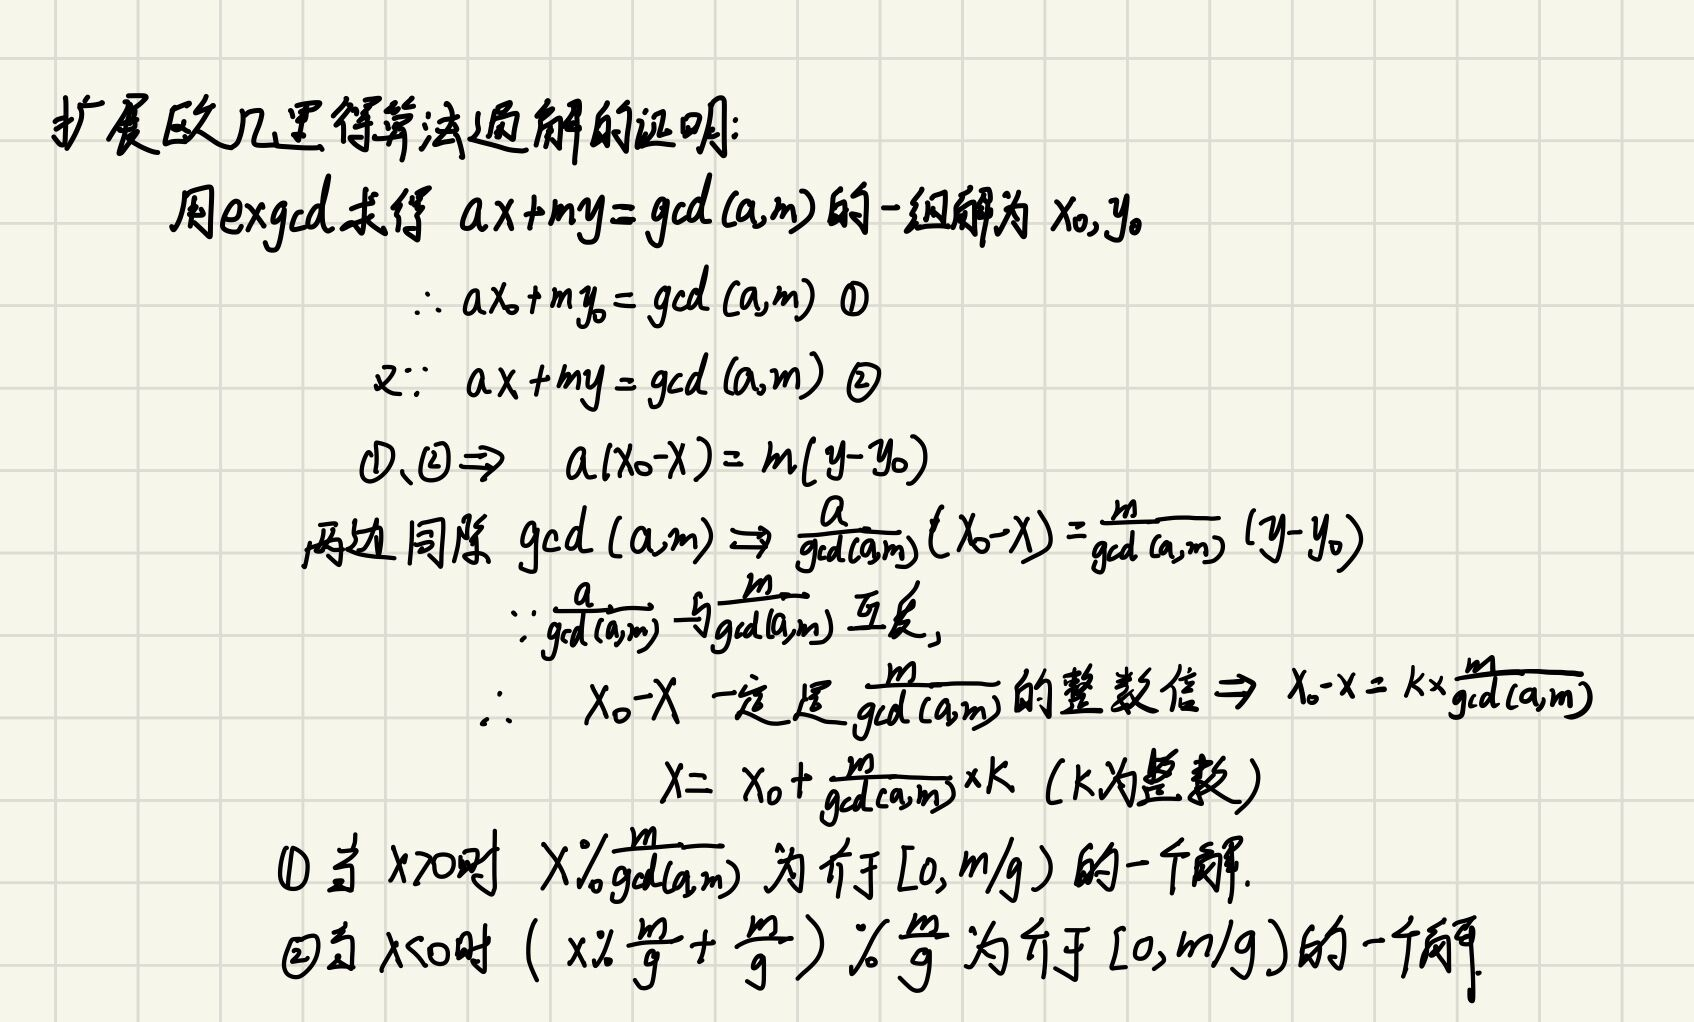 扩展欧几里得算法通解的证明:
用exgcd求得 ax+my=gcd(a,m)的一组解为 x₀,y₀
∴ ax₀+my₀=gcd(a,m) ①
又∵ ax+my=gcd(a,m) ②
①、②⇒ a(x₀-x)=m(y-y₀)
两边同除 gcd(a,m)⇒ a/gcd(a,m) (x₀-x)=m/gcd(a,m) (y-y₀)
∵ a/gcd(a,m) 与 m/gcd(a,m) 互质,
∴ x₀-x 一定是 m/gcd(a,m) 的整数倍⇒ x₀-x=k×m/gcd(a,m)
x=x₀+m/gcd(a,m)×k (k为整数)
①当 x>0时 x%m/gcd(a,m) 为介于[0,m/g)的一个解.
②当 x<0时 (x%m/g+m/g)%m/g 为介于[0,m/g)的一个解.